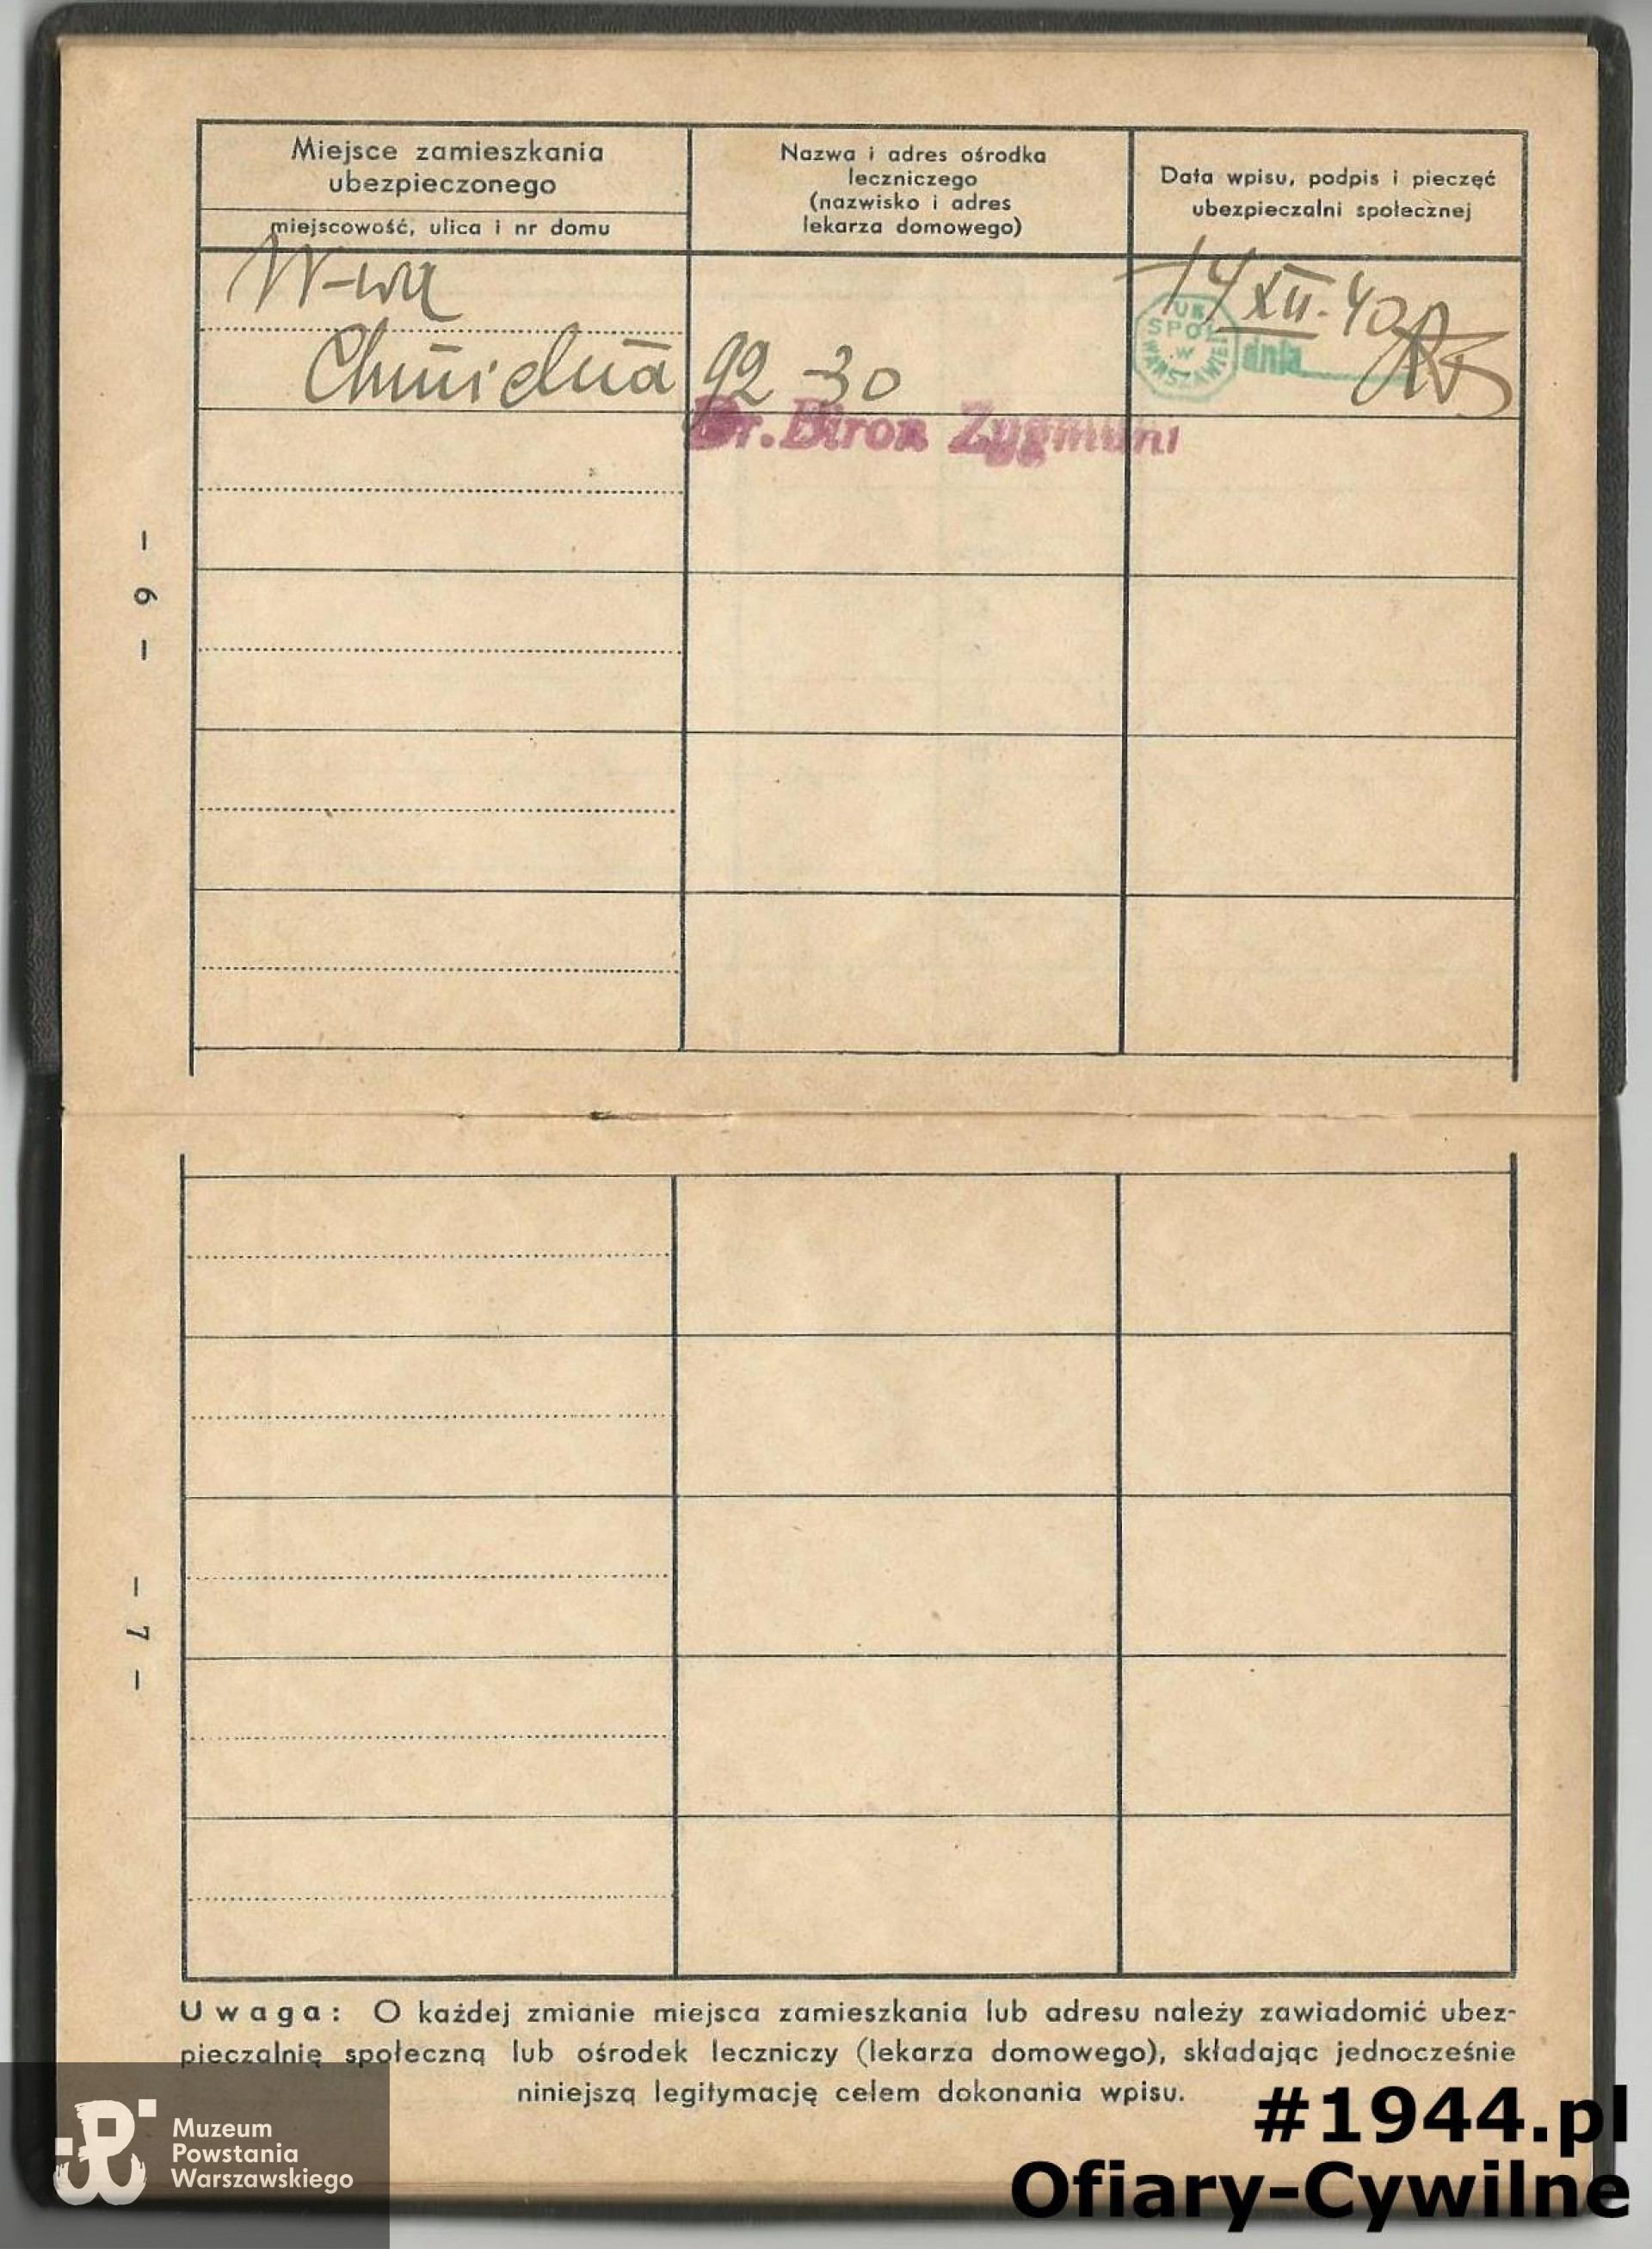 Miejsce zamieszkania
ubezpieczonego
miejscowość, ulica i nr domu
Nazwa i adres ośrodka
leczniczego
(nazwisko i adres
lekarza domowego)
Data wpisu, podpis i pieczęć
ubezpieczalni społecznej
W-wa
14 XII. 40
UB.
SPOŁ
w
WARSZAWIE
dnia
Chmielna 92 - 30
Dr. Biron Zygmunt
- 6 -
- 7 -
Uwaga: O każdej zmianie miejsca zamieszkania lub adresu należy zawiadomić ubez-
pieczalnię społeczną lub ośrodek leczniczy (lekarza domowego), składając jednocześnie
niniejszą legitymację celem dokonania wpisu.
#1944.pl
Ofiary-Cywilne
Muzeum
Powstania
Warszawskiego